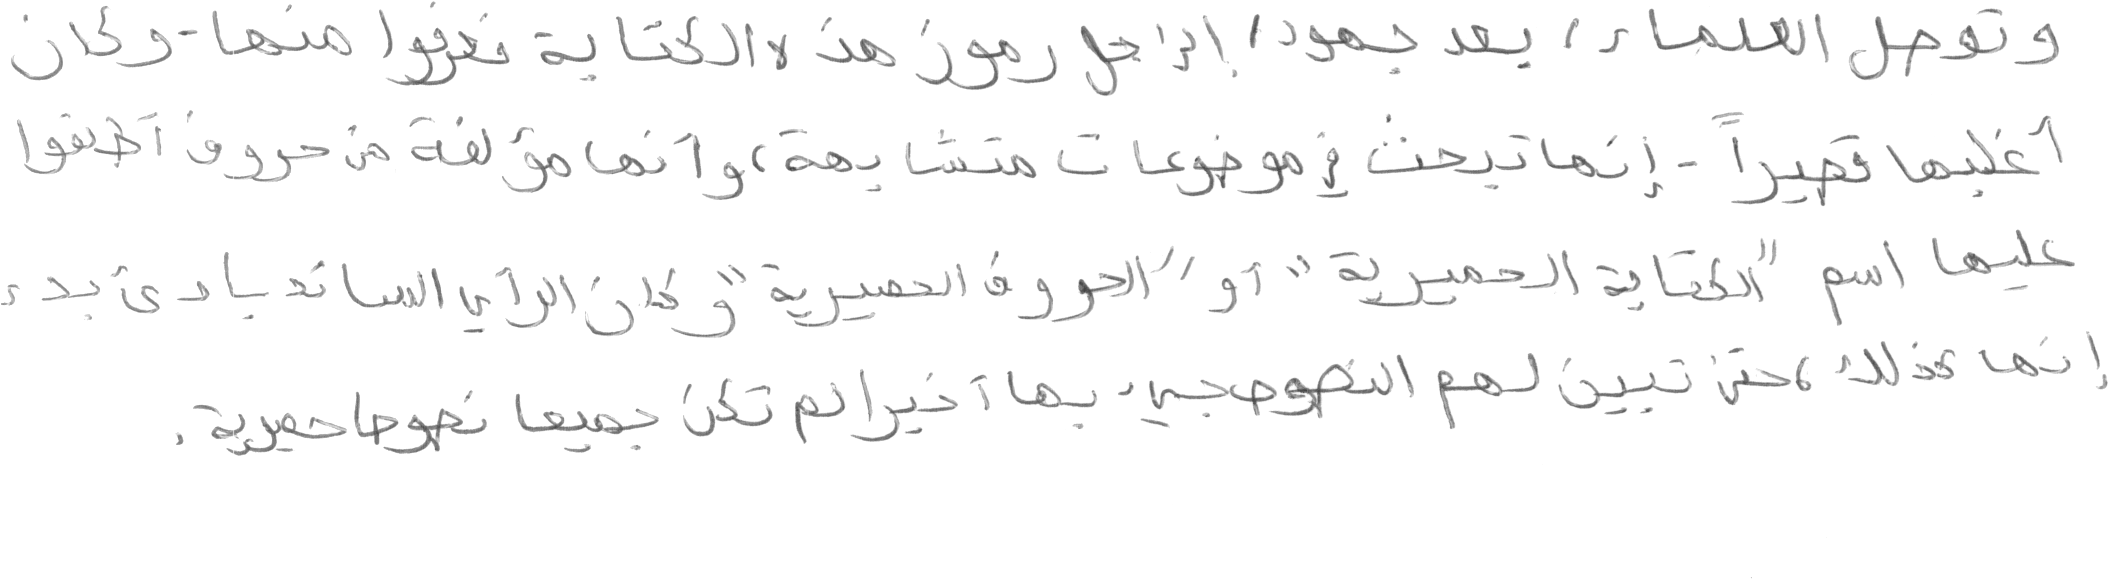 وتوصل العلماء، بعد جهود، إلى حل رموز هذه الكتابة فعرفوا منها - وكان
أغلبها قصيراً - إنها تبحث في موضوعات متشابهة، وأنها مؤلفة من حروف أطلقوا
عليها اسم "الكتابة الحميرية" أو "الحروف الحميرية" وكان الرأي السائد بادئ بدء
إنها كذلك، حتى تبين لهم النصوص جيء بها أخيرا لم تكن جميعا نصوصا حميرية.